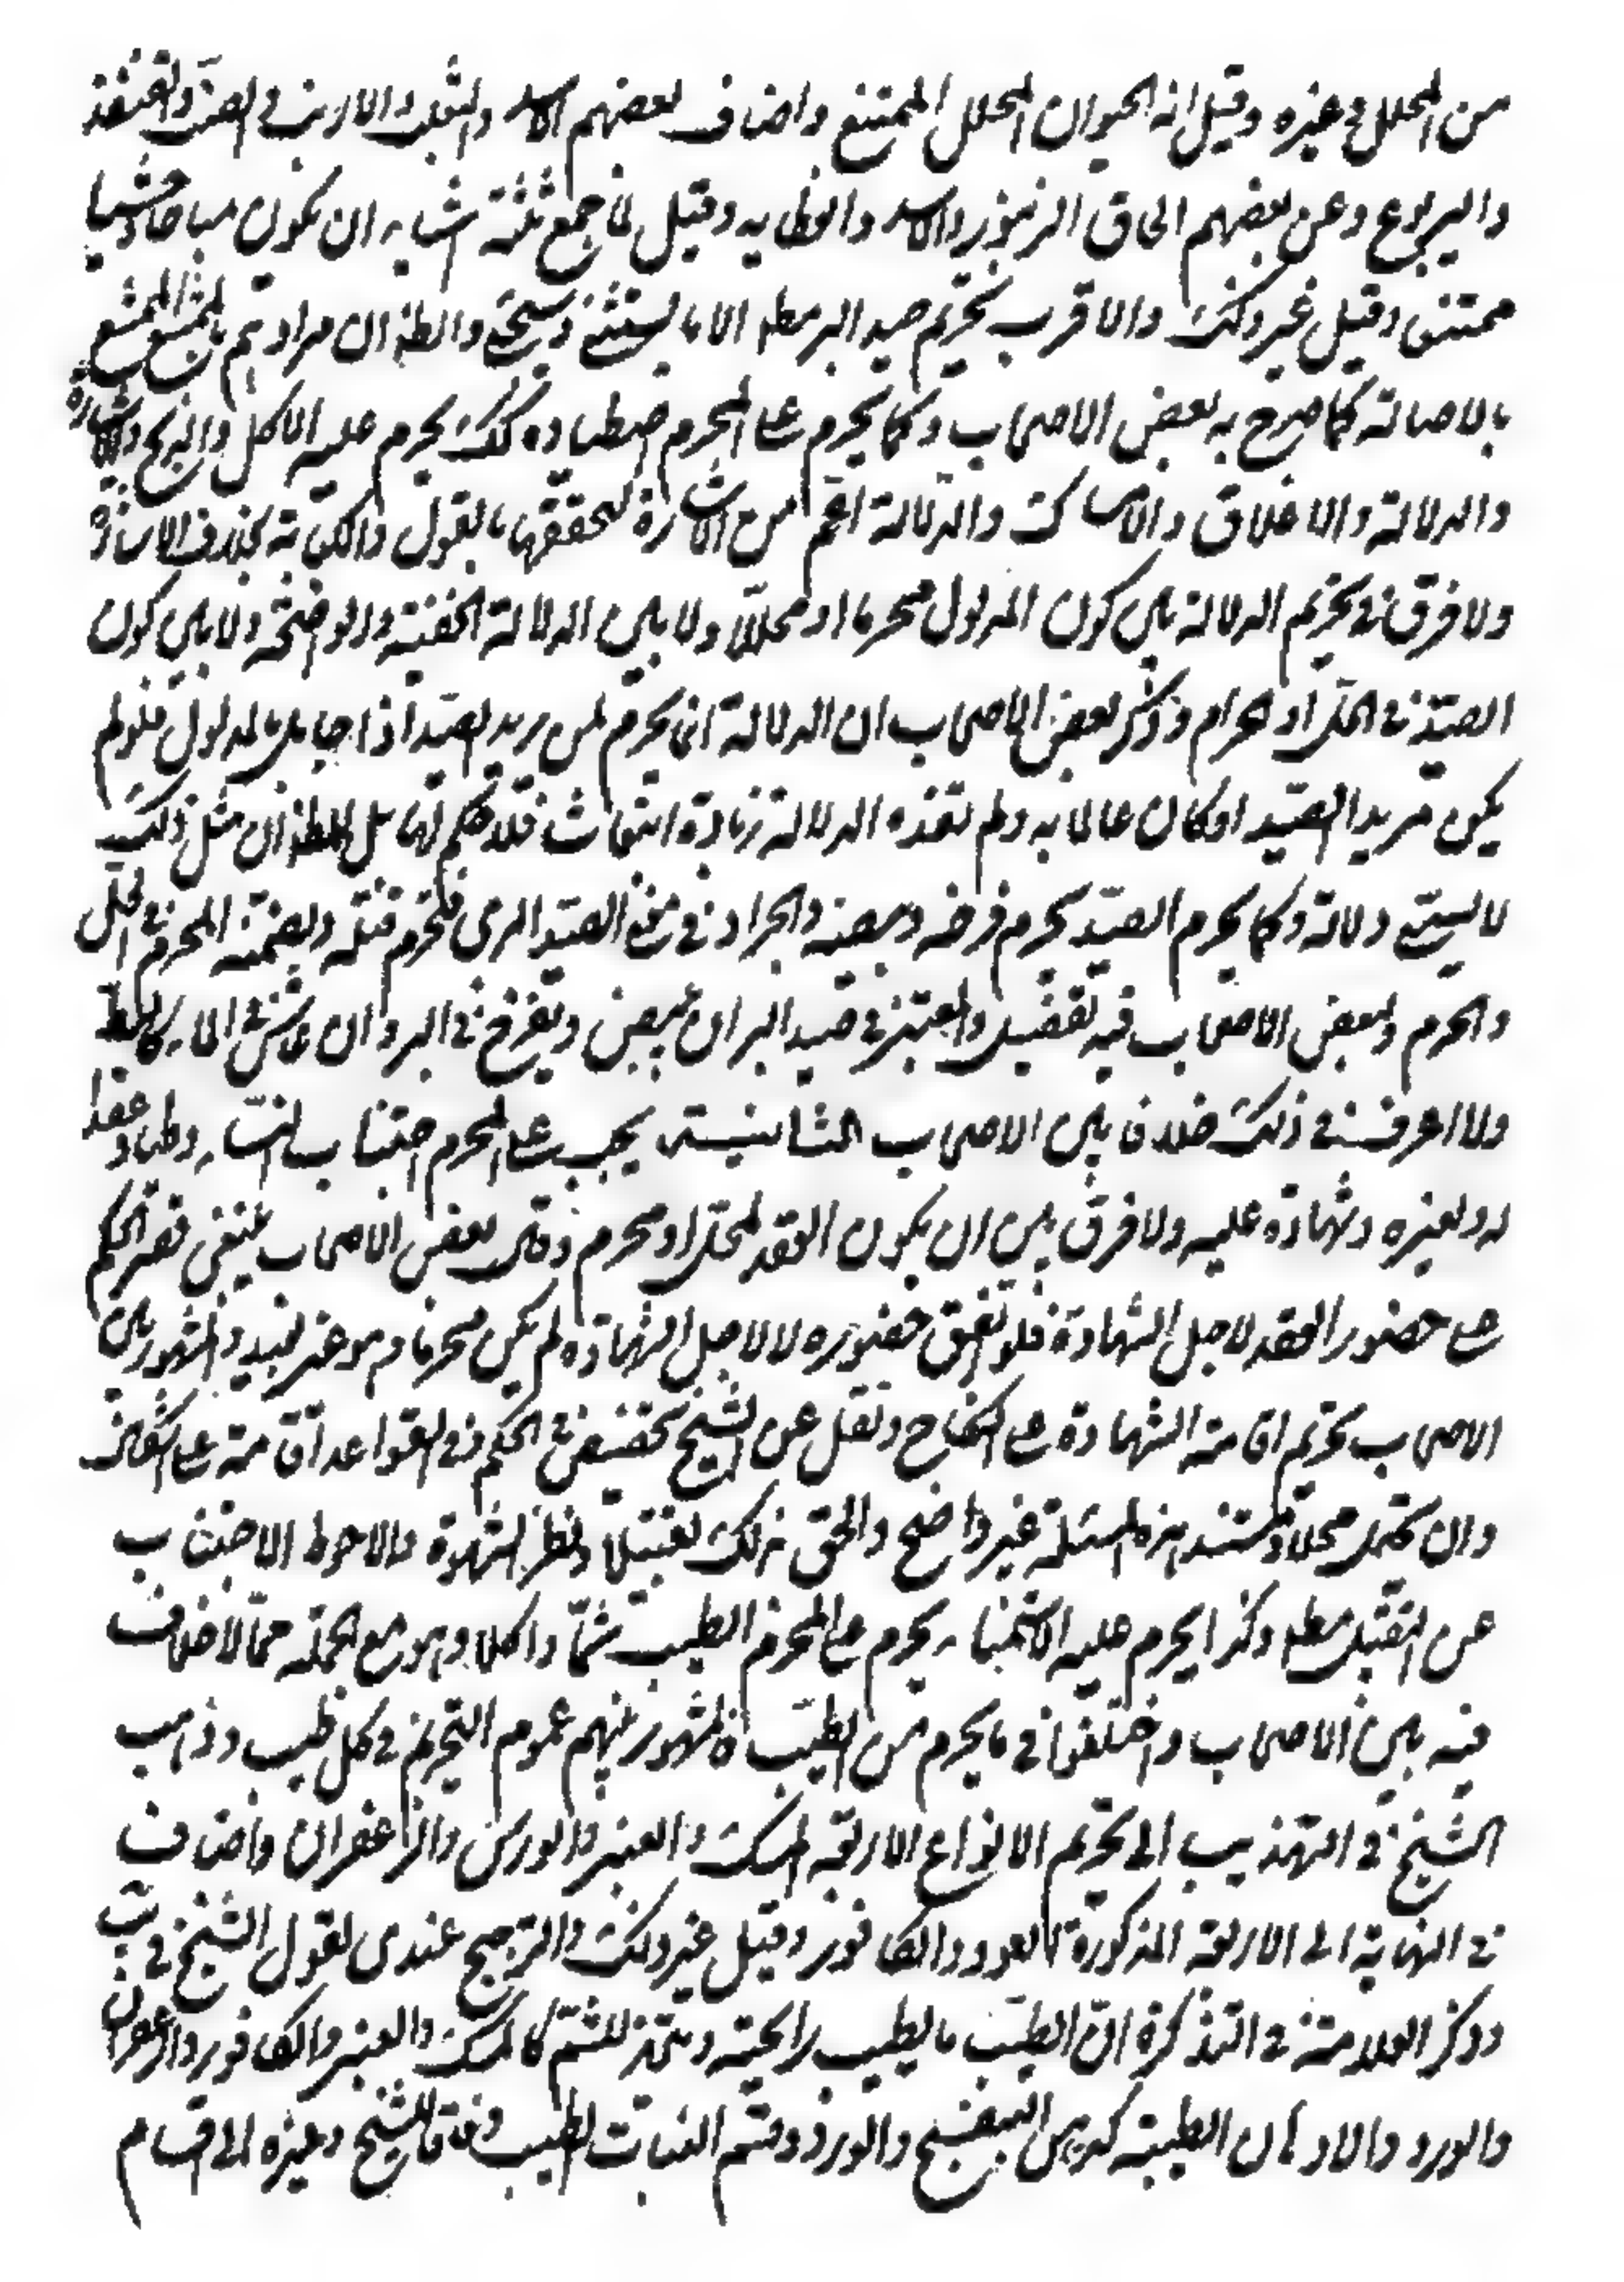 من المحلل في غيره وقيل انه الحيوان المحلل الممتنع واضاف بعضهم الاسد والثعلب والارنب والضب والقنفذ
واليربوع وعن بعضهم الحاق الزنبور والاسد والعظاية وقيل ما جمع ثلثة اشياء ان يكون مباحا وحشيا
ممتنعا وقيل غير ذلك والاقرب تحريم صيد البر مطلقا الا ما يستثنى وسيجيء والظ ان مرادهم بالممتنع الممتنع
بالاصالة كما صرح به بعض الاصحاب وكما يحرم على المحرم اصطياده كك يحرم عليه الاكل والذبح والاشارة
والدلالة والاغلاق والامساك والدلالة اعم من الاشارة لتحققها بالقول والكتابة بخلاف الاشارة
ولا فرق في تحريم الدلالة بين كون المدلول محرما او محلا ولا بين الدلالة الخفية والواضحة ولا بين كون
الصيد في الحل او الحرام وذكر بعض الاصحاب ان الدلالة انما يحرم لمن يريد الصيد اذا جاهلا المدلول فلو لم
يكن مريدا للصيد او كان عالما به ولم تفده الدلالة زيادة انبعاث فلا حكم لها بل الظ ان مثل ذلك
لا يسمى دلالة وكما يحرم الصيد يحرم فرخه وبيضه والجراد في معنى الصيد البري فيحرم قتله ويضمنه المحرم في الحل
والحرم ولبعض الاصحاب فيه تفصيل والمعتبر في صيد البر ان يبيض ويفرخ في البر وان عاش في الماء كالبط
ولا اعرف في ذلك خلافا بين الاصحاب الثانية يجب على المحرم اجتناب النساء وطيا وعقدا
له ولغيره وشهادة عليه ولا فرق بين ان يكون العقد لمحل او محرم وقال بعض الاصحاب ينبغي قصر الحكم
على حضور العقد لاجل الشهادة فلو اتفق حضوره لا لاجل الشهادة لم يكن محرما وهو غير بعيد والمشهور بين
الاصحاب تحريم اقامة الشهادة على النكاح ونقل عن الشيخ تخصيص الحكم في القواعد اقامة على اشكال
وان تحمل محلا ومستند هذه المسئلة غير واضح والحق بذلك تقبيلا ونظرا بشهوة والاحوط الاجتناب
عن التقبيل مطلقا وكذا يحرم عليه الاستمناء يحرم على المحرم الطيب شما واكلا وهو مع الجملة مما لا خلاف
فيه بين الاصحاب واختلفوا في ما يحرم من الطيب فالمشهور بينهم عموم التحريم في كل طيب وذهب
الشيخ في التهذيب الى تحريم الانواع الاربعة المسك والعنبر والورس والزعفران واضاف
في النهاية الى الاربعة المذكورة العود والكافور وقيل غير ذلك والترجيح عندي لقول الشيخ في يب
وذكر العلامة في التذكرة ان الطيب ما يطيب رايحته ويتخذ للشم كالمسك والعنبر والكافور والزعفران
والورد والادهان الطيبة كدهن البنفسج والورد وقسم النبات الطيب وفاقا للشيخ وغيره الى اقسام